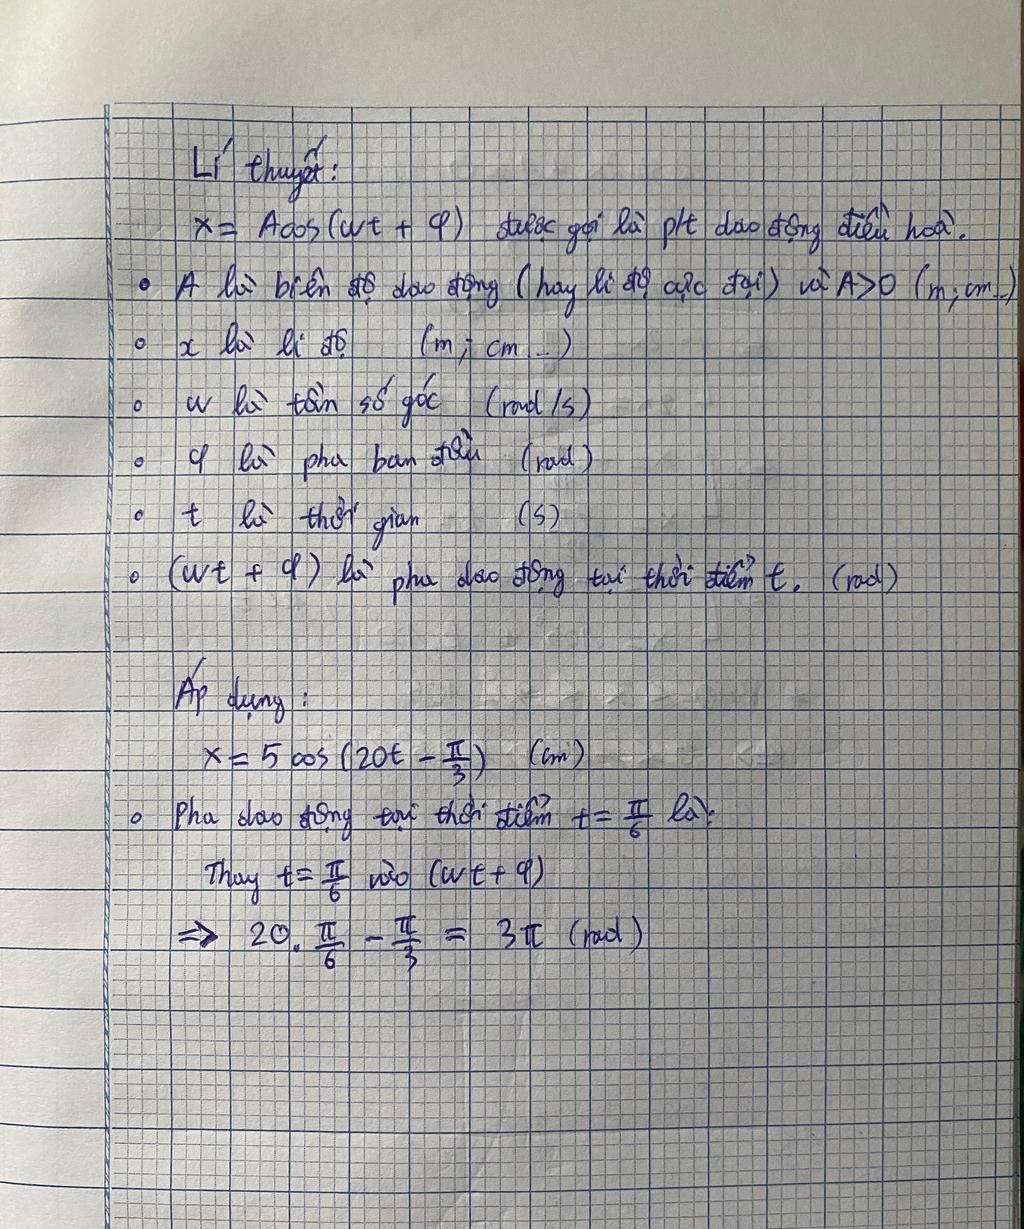 Lí thuyết:
x = Acos(ωt + φ) được gọi là pt dao động điều hoà.
• A là biên độ dao động (hay li độ cực đại) và A>0 (m; cm...)
• x là li độ (m; cm ...)
• ω là tần số góc (rad/s)
• φ là pha ban đầu (rad)
• t là thời gian (s)
• (ωt + φ) là pha dao động tại thời điểm t. (rad)
Áp dụng:
x = 5 cos(20t - π/3) (cm)
• Pha dao động tại thời điểm t = π/6 là:
Thay t = π/6 vào (ωt + φ)
⇒ 20. π/6 - π/3 = 3π (rad)